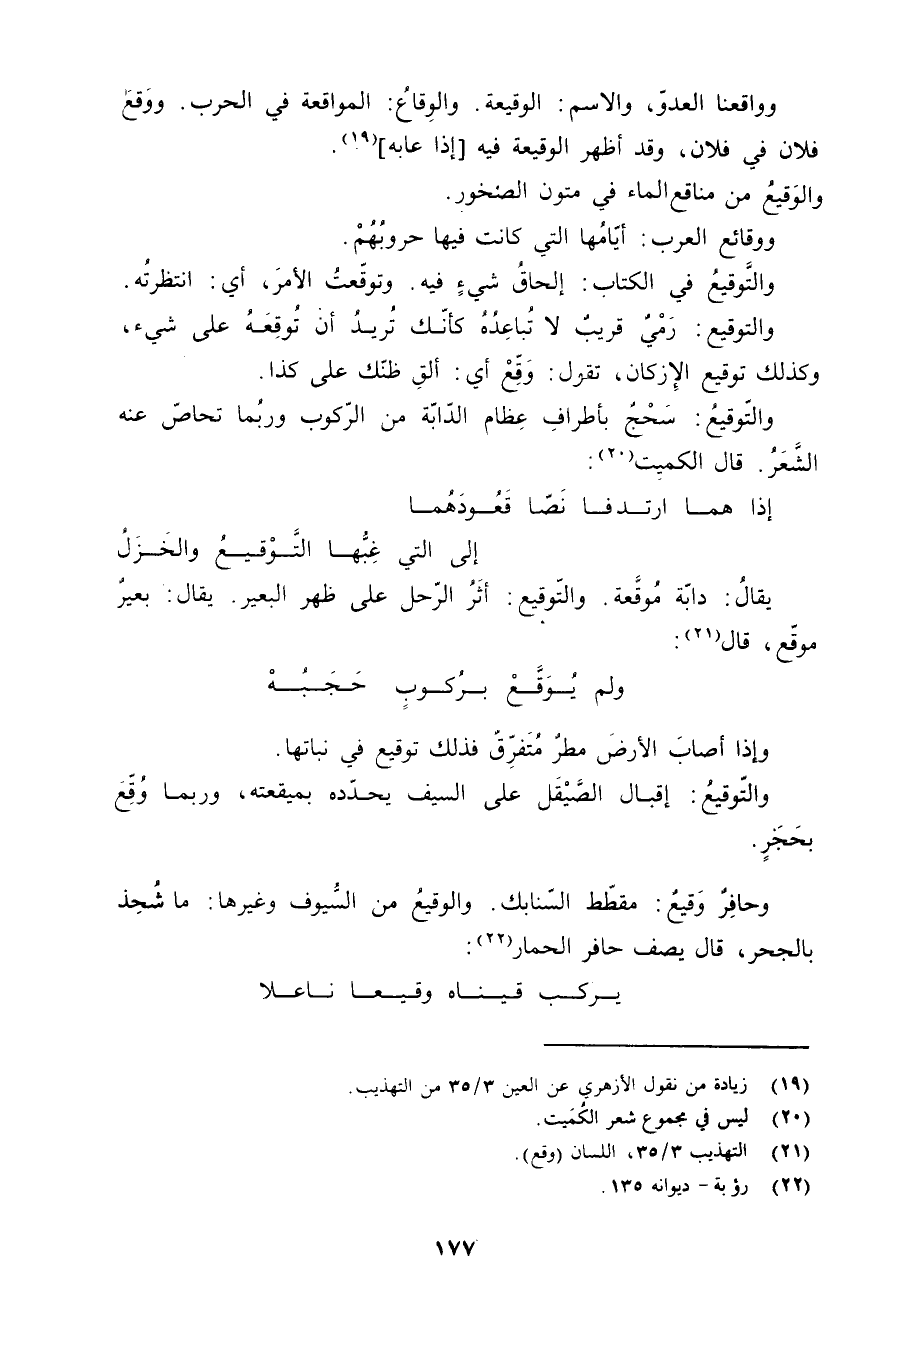 وواقعنا العدوّ، والاسم: الوقيعة. والوِقاعُ: المواقعة في الحرب. ووَقعَ
فلان في فلان، وقد أظهر الوقيعة فيه [إذا عابه](١٩).
والوَقيعُ من مناقع الماء في متون الصّخور.
ووقائع العرب: أيّامُها التي كانت فيها حروبُهُمْ.
والتَّوقيعُ في الكتاب: إلحاقُ شيءٍ فيه. وتوقّعتُ الأمرَ، أي: انتظرتُه.
والتوقيع: رَمْيٌ قريبٌ لا تُباعِدُهُ كأنّك تُريدُ أن تُوقِعَهُ على شيء،
وكذلك توقيع الإزكان، تقول: وَقِّعْ أي: ألقِ ظنّك على كذا.
والتّوقيعُ: سَحْجٌ بأطرافِ عِظام الدّابّة من الرّكوب وربُما تحاصّ عنه
الشَّعَرُ. قال الكميت(٢٠):
إذا هما ارتدفا نَصّا قَعُودَهُما
إلى التي غِبُّها التَّوْقيعُ والخَزَلُ
يقالُ: دابّة مُوقَّعة. والتّوقيع: أثَرُ الرّحل على ظهر البعير. يقال: بعيرٌ
موقّع، قال(٢١):
ولم يُوَقَّعْ بِرُكوبٍ حَجَبُهْ
وإذا أصابَ الأرضَ مطرٌ مُتَفرِّقٌ فذلك توقيع في نباتها.
والتّوقيعُ: إقبال الصَّيْقَلِ على السيف يحدّده بميقعته، وربما وُقّعَ
بحَجَرٍ.
وحافِرٌ وَقيعٌ: مقطّط السّنابك. والوقيعُ من السُّيوف وغيرها: ما شُحِذ
بالحجر، قال يصف حافر الحمار(٢٢):
يركب قيناه وقيعا ناعلا
(١٩) زيادة من نقول الأزهري عن العين ٣٥/٣ من التهذيب.
(٢٠) ليس في مجموع شعر الكُمَيت.
(٢١) التهذيب ٣٥/٣، اللسان (وقع).
(٢٢) رؤبة - ديوانه ١٣٥.
١٧٧